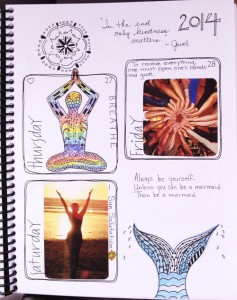 "In the end
only kindness
matters." - Jewel
2014
27
Thursday
BREATHE
28
To receive everything,
one must open one's hands
and give.
Friday
Saturday
Sun Salutation
Always be yourself.
Unless you can be a mermaid.
Then be a mermaid.